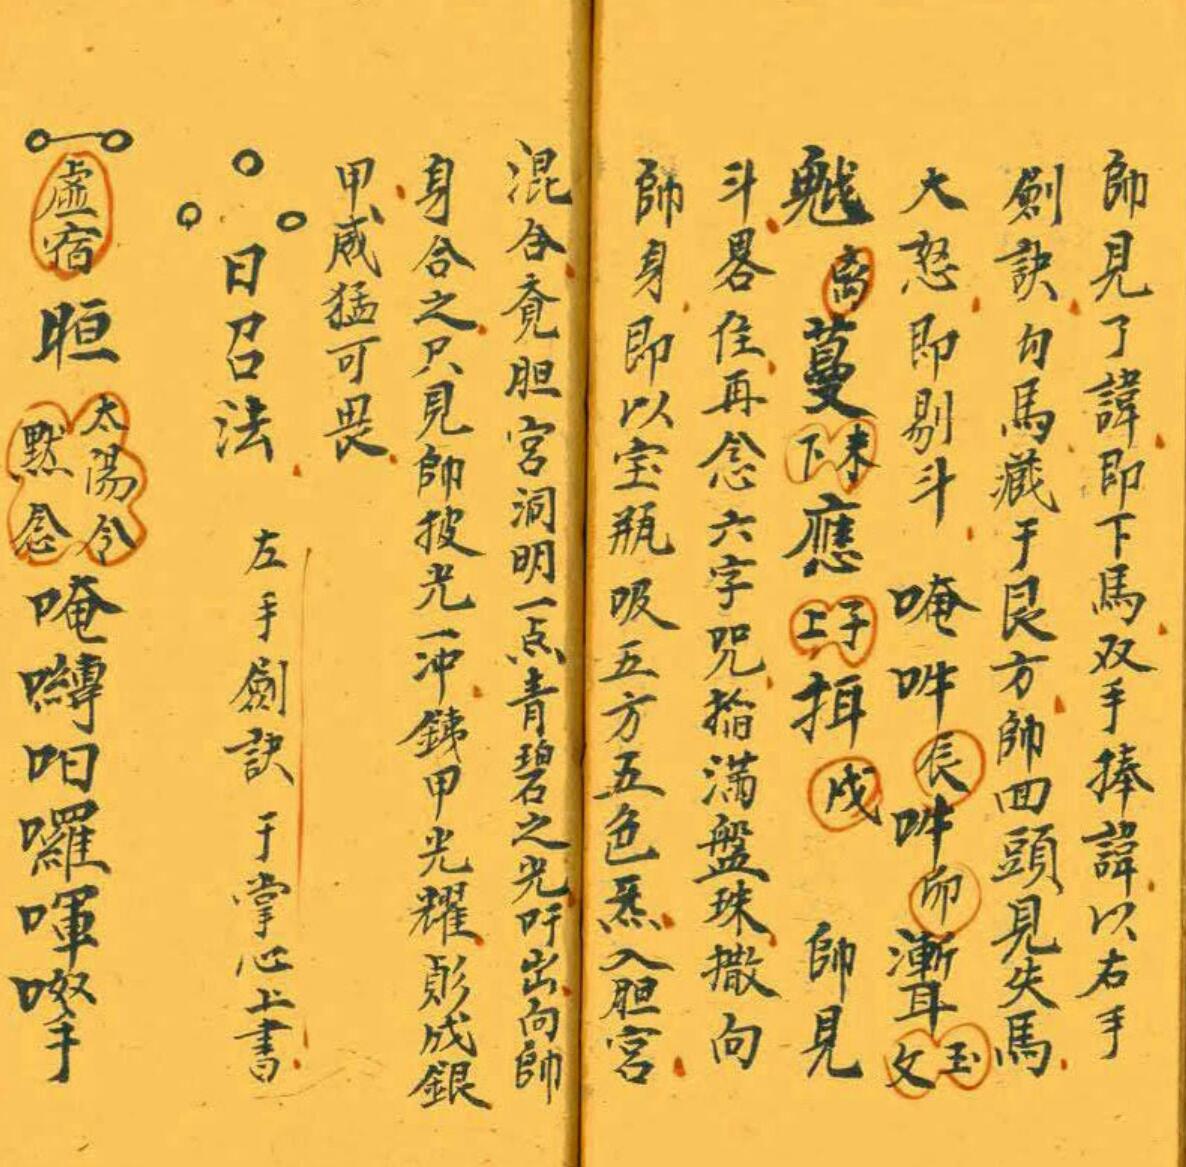 帥見了諱即下馬双手捧諱以右手
劍訣勾馬藏于艮方帥回頭見失馬
大怒即剔斗 唵吽辰吽卯漸耳玉文
魆离蔓未下應子上揖戌 帥見
斗畧住再念六字咒稲滿盤珠撒向
帥身即以宝瓶吸五方五色炁入胆宮
混合竟胆宮洞明一点青碧之光吁出向帥
身合之只見帥披光一冲銕甲光耀髟成銀
甲威猛可畏
日召法 左手劍訣于掌心上書
虛宿晅太陽令默念唵嚩呬囉喗